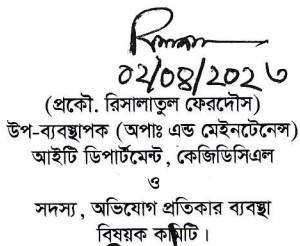 ০২/০৪/২০২৩
(প্রকৌ. রিসালাতুল ফেরদৌস)
উপ-ব্যবস্থাপক (অপাঃ এন্ড মেইনটেনেন্স)
আইটি ডিপার্টমেন্ট, কেজিডিসিএল
ও
সদস্য, অভিযোগ প্রতিকার ব্যবস্থা
বিষয়ক কমিটি।